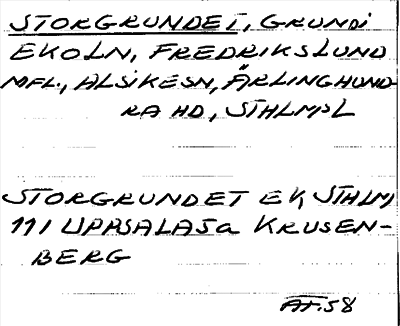 STORGRUNDET, GRUND i
EKOLN, FREDRIKSLUND
MFL., ALSIKE SN, ÄRLINGHUND-
RA HD, STHLMS L
STORGRUNDET EK, STHLM,
111 UPPSALA Sa KRUSEN-
BERG
AT. 58